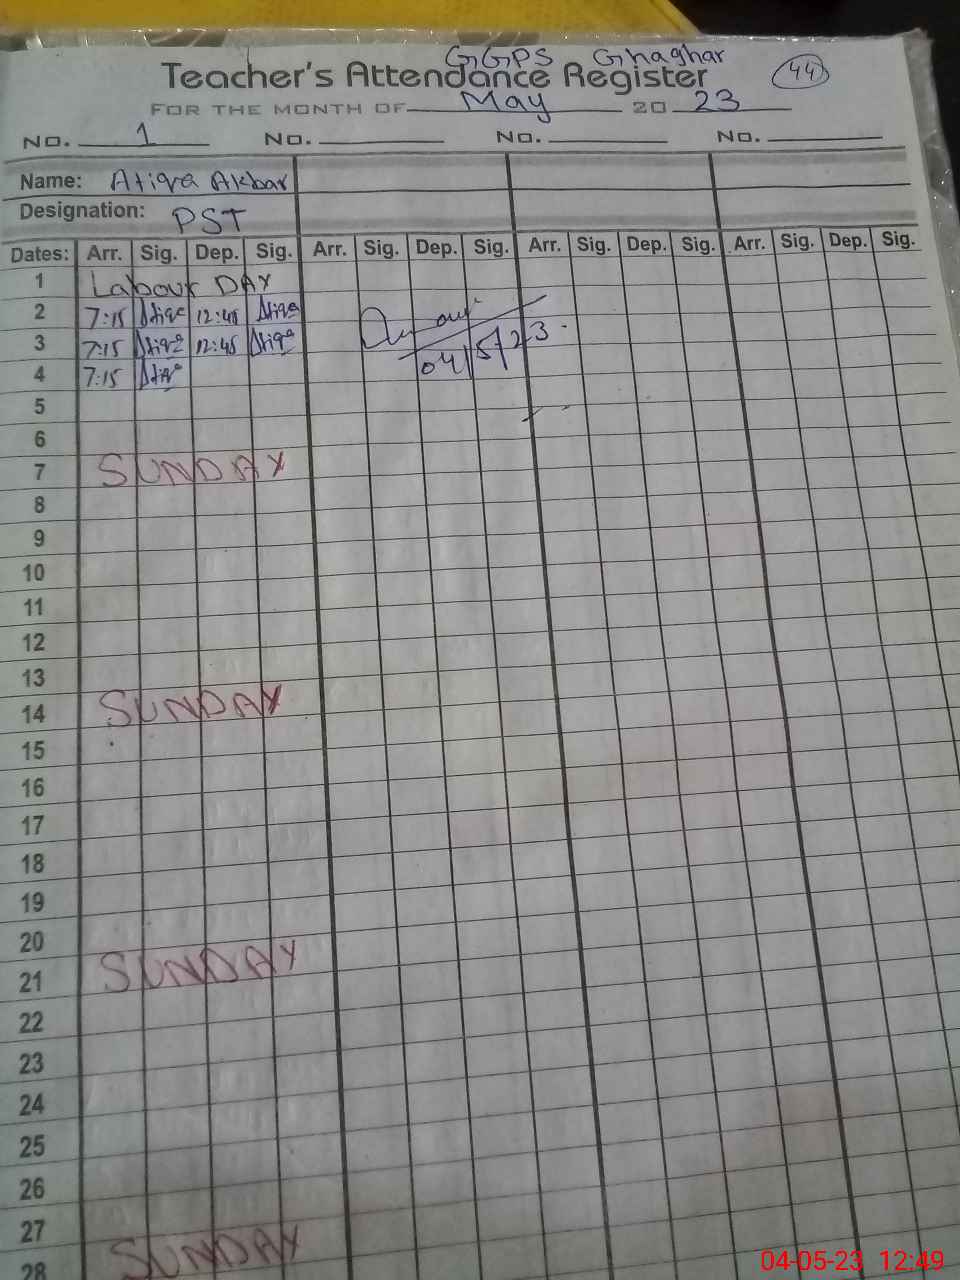 GGPS Ghaghar
Teacher's Attendance Register
44
FOR THE MONTH OF May 20 23
NO. 1 NO. NO. NO.
Name: Atiqa Akbar
Designation: PST
Dates: Arr. Sig. Dep. Sig. Arr. Sig. Dep. Sig. Arr. Sig. Dep. Sig. Arr. Sig. Dep. Sig.
1 Labour DAY
2 7:15 Atiqa 12:45 Atiqa
3 7:15 Atiqa 12:45 Atiqa
04/5/23
4 7:15 Atiqa
5
6
7 SUNDAY
8
9
10
11
12
13
14 SUNDAY
15
16
17
18
19
20
21 SUNDAY
22
23
24
25
26
27
28 SUNDAY
04-05-23 12:49